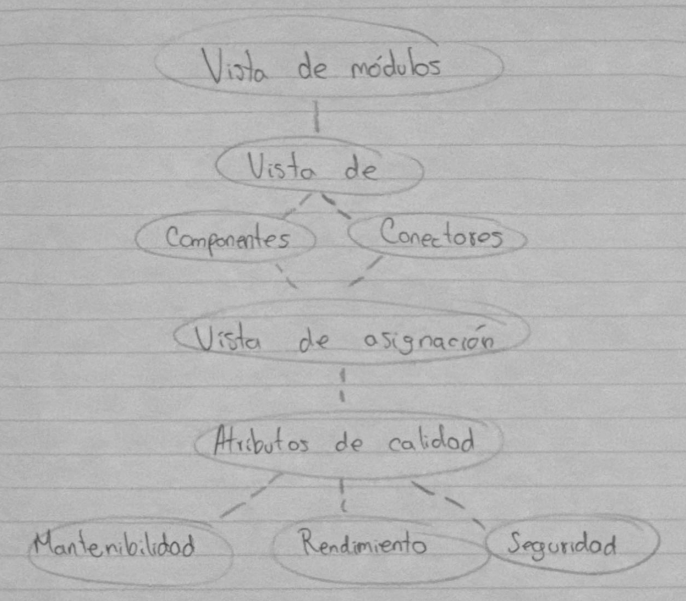 Vista de módulos
Vista de
Componentes Conectores
Vista de asignación
Atributos de calidad
Mantenibilidad Rendimiento Seguridad